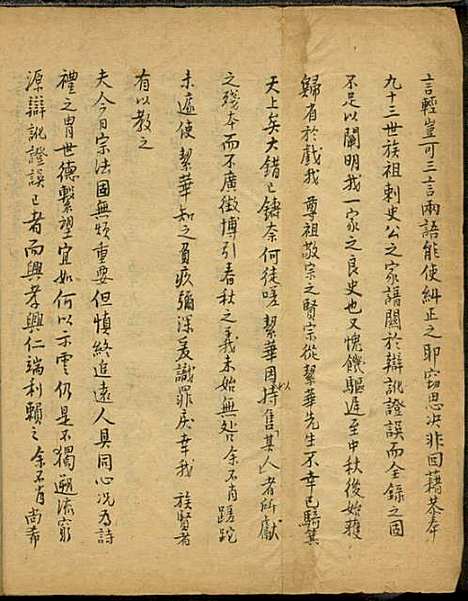 言輕豈可三言兩語能使糾正之耶窃思决非回藉恭奉
九十三世族祖刺史公之家譜關於辯訛證誤而全錄之固
不足以闡明我一家之良史也又愧饑驅遲至中秋後始獲
歸省於戲我 尊祖敬宗之賢宗從絜華先生不幸已騎箕
天上矣大錯已鑄奈何徒嗟絜華因持以售其人者所獻
之殘本而不廣徵博引春秋之義未始無咎余不肖蹉跎
未遑使絜華知之負疚彌深爰識罪戾幸我 族賢者
有以教之
夫今日宗法固無煩重要但慎終追遠人具同心况為詩
禮之胄世德繫望宜如何以示云仍是不獨遡流窮
源辯訛證誤已者而興孝興仁端利賴之余不肖尚希